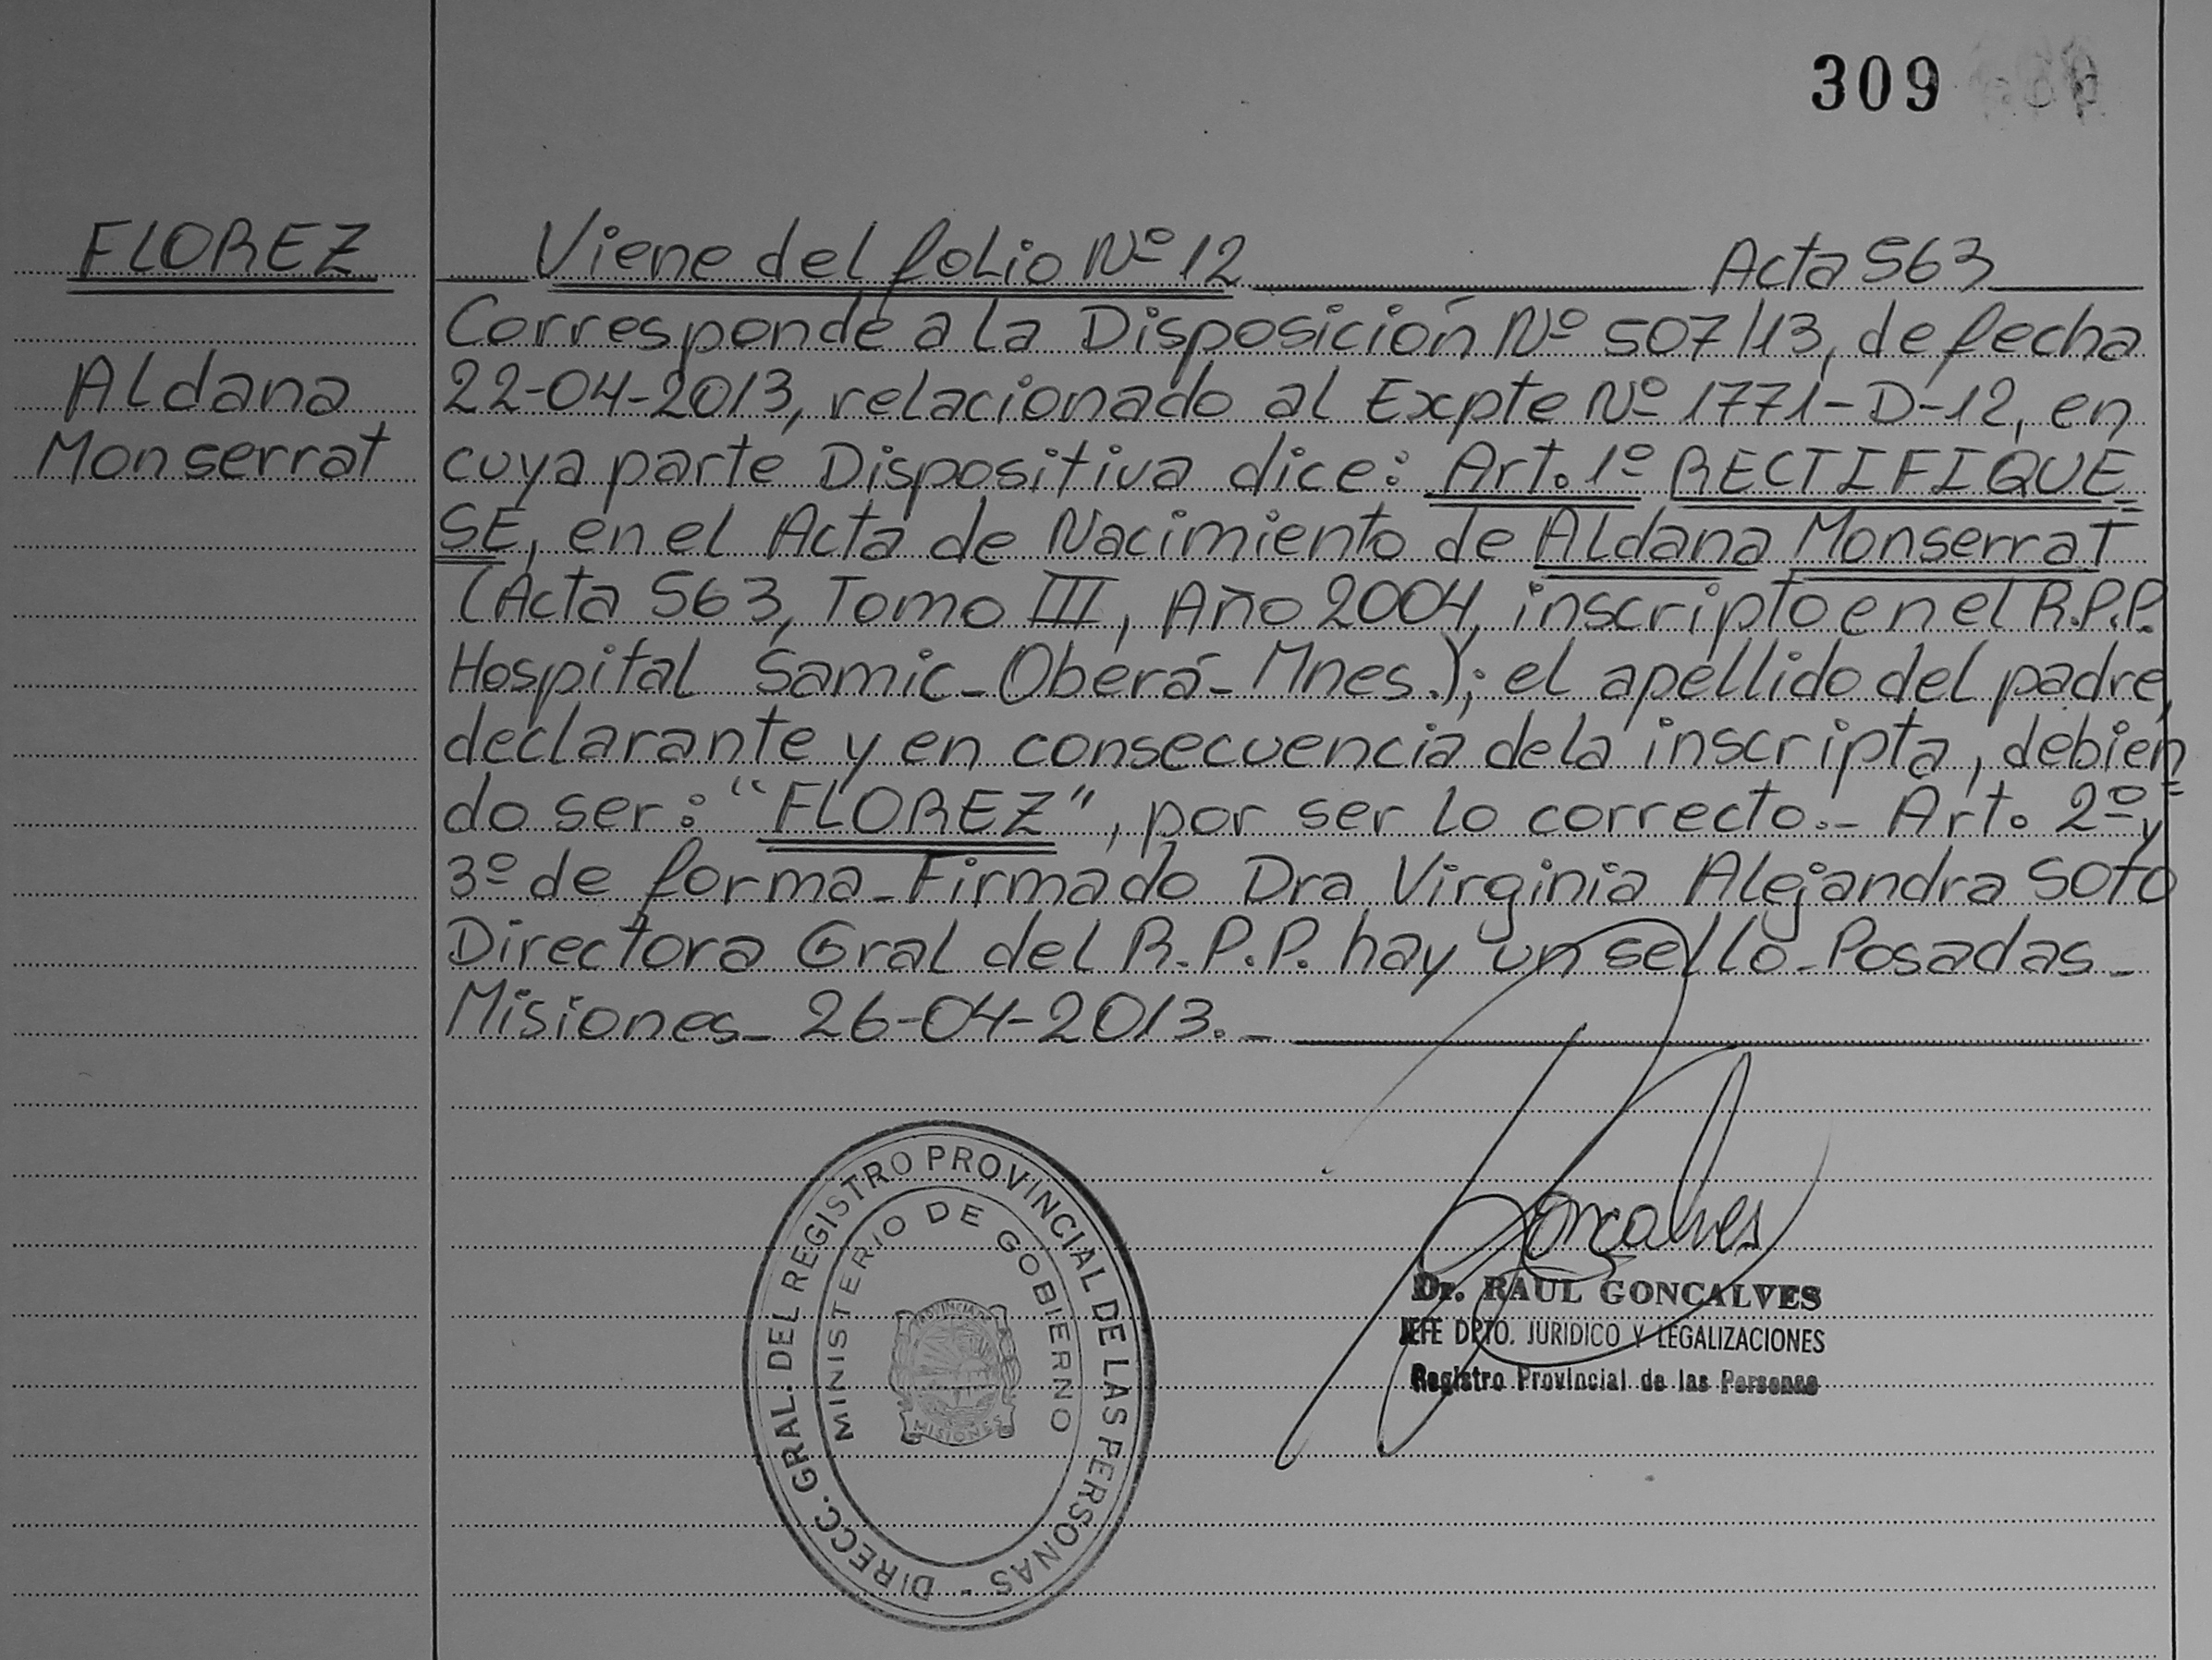 309
FLOREZ
Aldana
Monserrat
Viene del folio Nº 12 Acta 563
Corresponde a la Disposición Nº 507/13, de fecha
22-04-2013, relacionado al Expte Nº 1771-D-12, en
cuya parte Dispositiva dice: Art. 1º RECTIFIQUE=
SE, en el Acta de Nacimiento de Aldana Monserrat
(Acta 563, Tomo III, Año 2004, inscripto en el R.P.P.
Hospital Samic-Oberá-Mnes.); el apellido del padre,
declarante y en consecuencia de la inscripta, debien=
do ser: "FLOREZ", por ser lo correcto.- Art. 2º y
3º de forma-Firmado Dra Virginia Alejandra SOTO
Directora Gral del R.P.P. hay un sello-Posadas-
Misiones- 26-04-2013.-
DIRECC. GRAL. DEL REGISTRO PROVINCIAL DE LAS PERSONAS -
MINISTERIO DE GOBIERNO
PROVINCIA DE
MISIONES
Goncalves
Dr. RAUL GONCALVES
JEFE DPTO. JURIDICO Y LEGALIZACIONES
Registro Provincial de las Personas